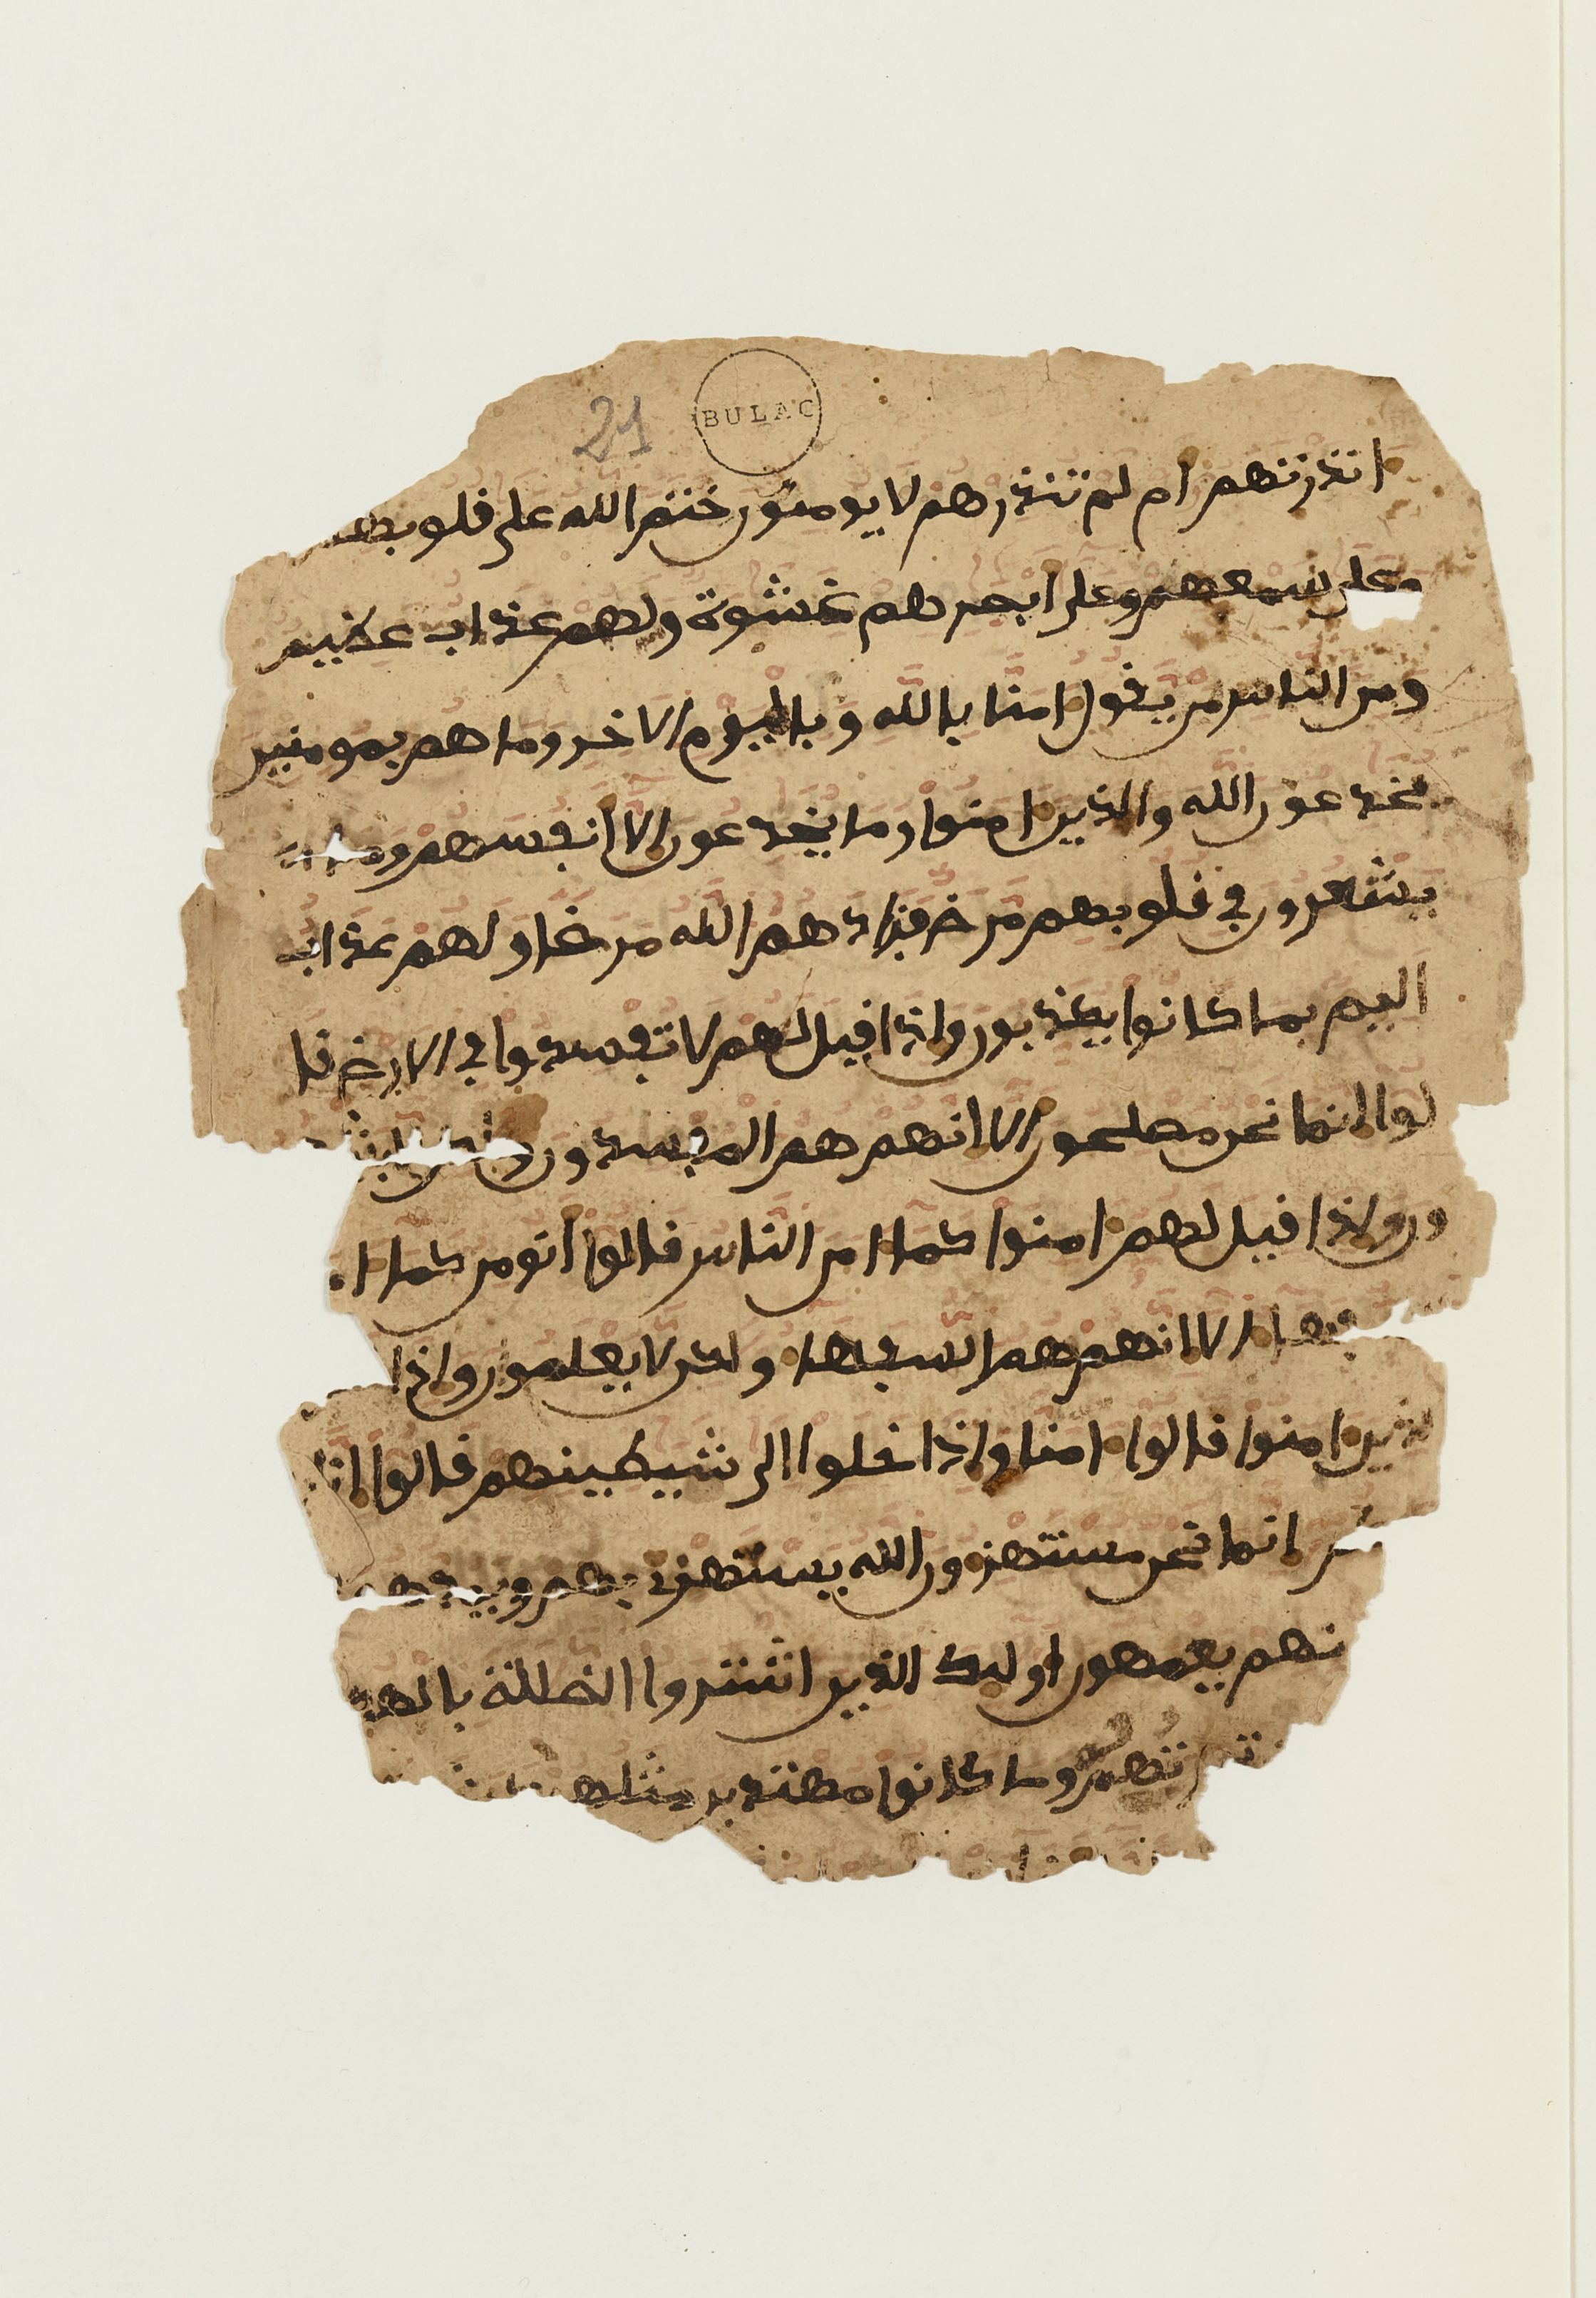 21
BULAC
انذرتهم ام لم تنذرهم لا يومنون ختم الله على قلوبهم
وعلى سمعهم وعلى ابصرهم غشوة ولهم عذاب عظيم
ومن الناس من يقول امنا بالله وباليوم الاخر وما هم بمومنين
يخدعون الله والذين امنوا وما يخدعون الا انفسهم وما
يشعرون في قلوبهم مرض فزادهم الله مرضا ولهم عذاب
اليم بما كانوا يكذبون واذا قيل لهم لا تفسدوا في الارض قا
لوا انما نحن مصلحون الا انهم هم المفسدون ولكن لا يشعر
ون واذا قيل لهم امنوا كما امن الناس قالوا انومن كما ا
الا انهم هم السفها ولكن لا يعلمون واذا
لذين امنوا قالوا امنا واذا خلوا الى شيطينهم قالوا انا
انما نحن مستهزون الله يستهزي بهم ويمدهم
نهم يعمهون اوليك الذين اشتروا الضللة بالهد
تجرتهم وما كانوا مهتدين مثلهم